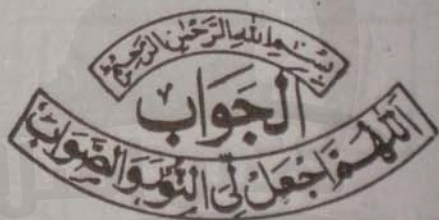 بِسْمِ اللهِ الرَّحْمٰنِ الرَّحِيْمِ
اَلْجَوَابْ
اَللّٰهُمَّ اجْعَلْ لِّي النُّوْرَ وَالصَّوَابْ